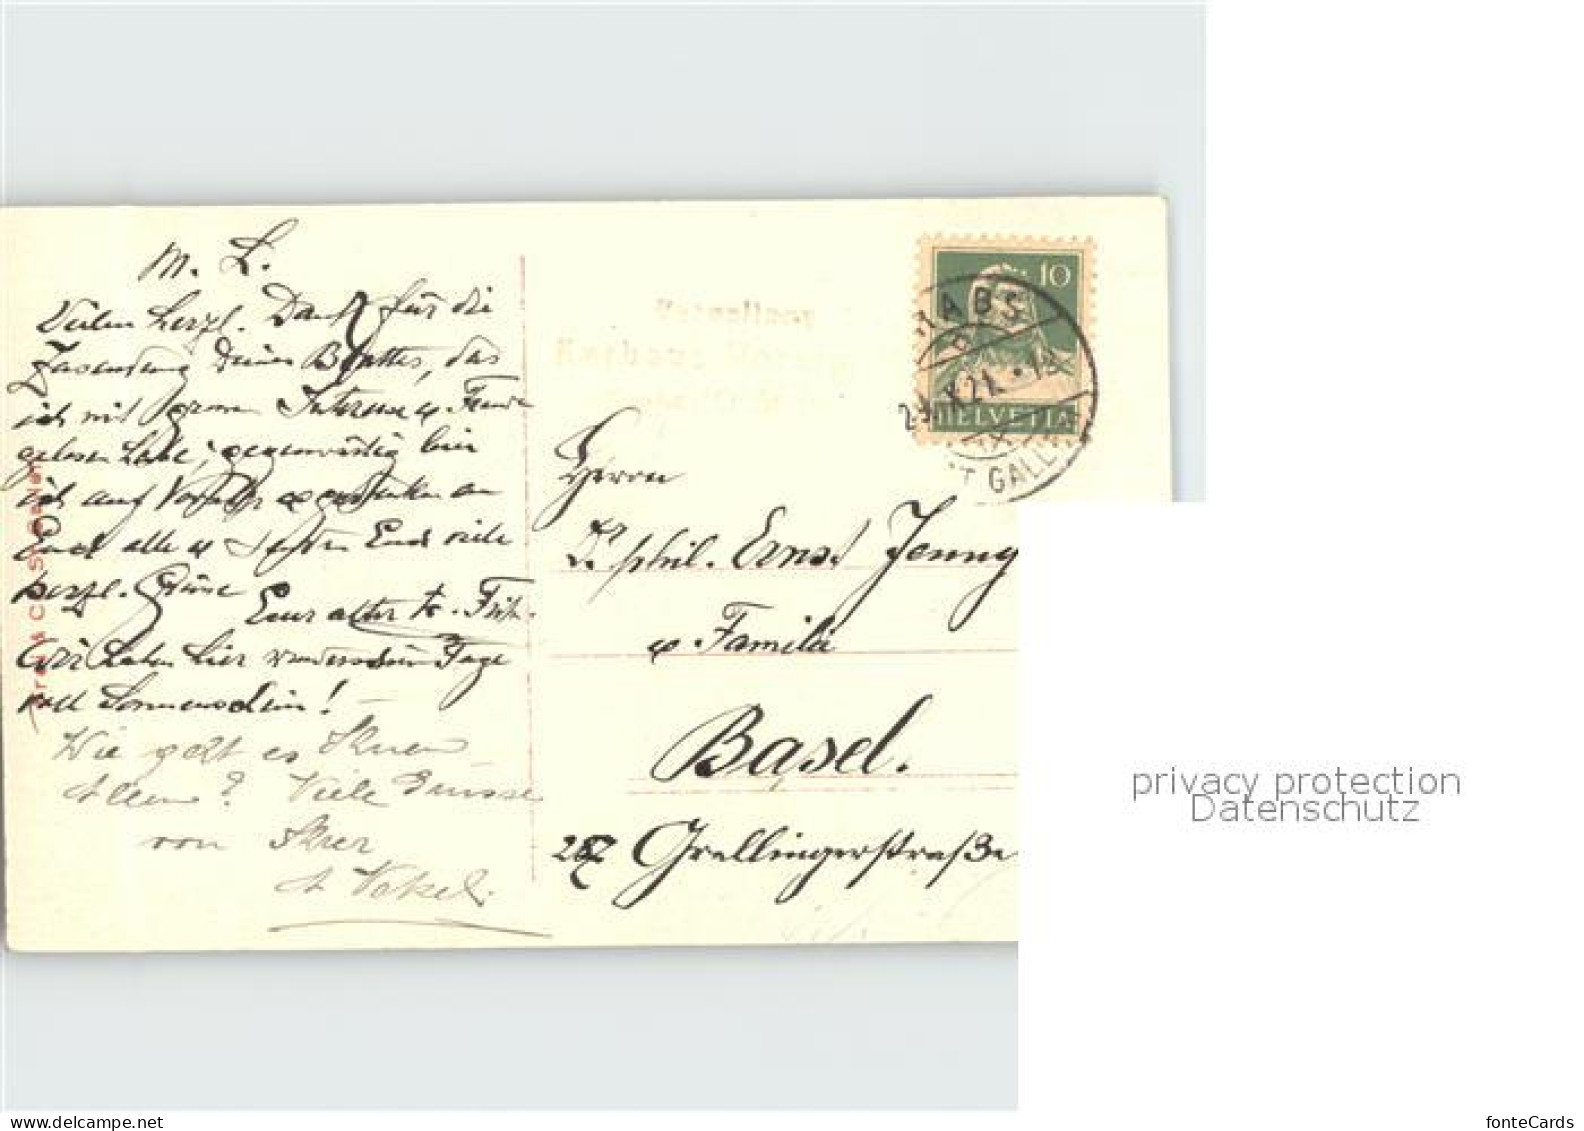 M. L.
Vielen herzl. Dank für die
Zusendung Deines Blattes, das
ich mit grossem Interesse & Freude
gelesen habe; gegenwärtig bin
ich auf &
Euch alle & Euch viele
herzl. Grüsse
Euer alter Fritz.
Wir haben hier wunderschöne Tage
voll Sonnenschein!
Wie geht es Ihnen
Allen? Viele Grüsse
von Ihrer
10
HELVETIA
ABS
X21.
T GALL
Herrn
Dr phil. Ernst Jenny
& Familie
Basel.
Grellingerstraße
privacy protection
Datenschutz
fonteCards